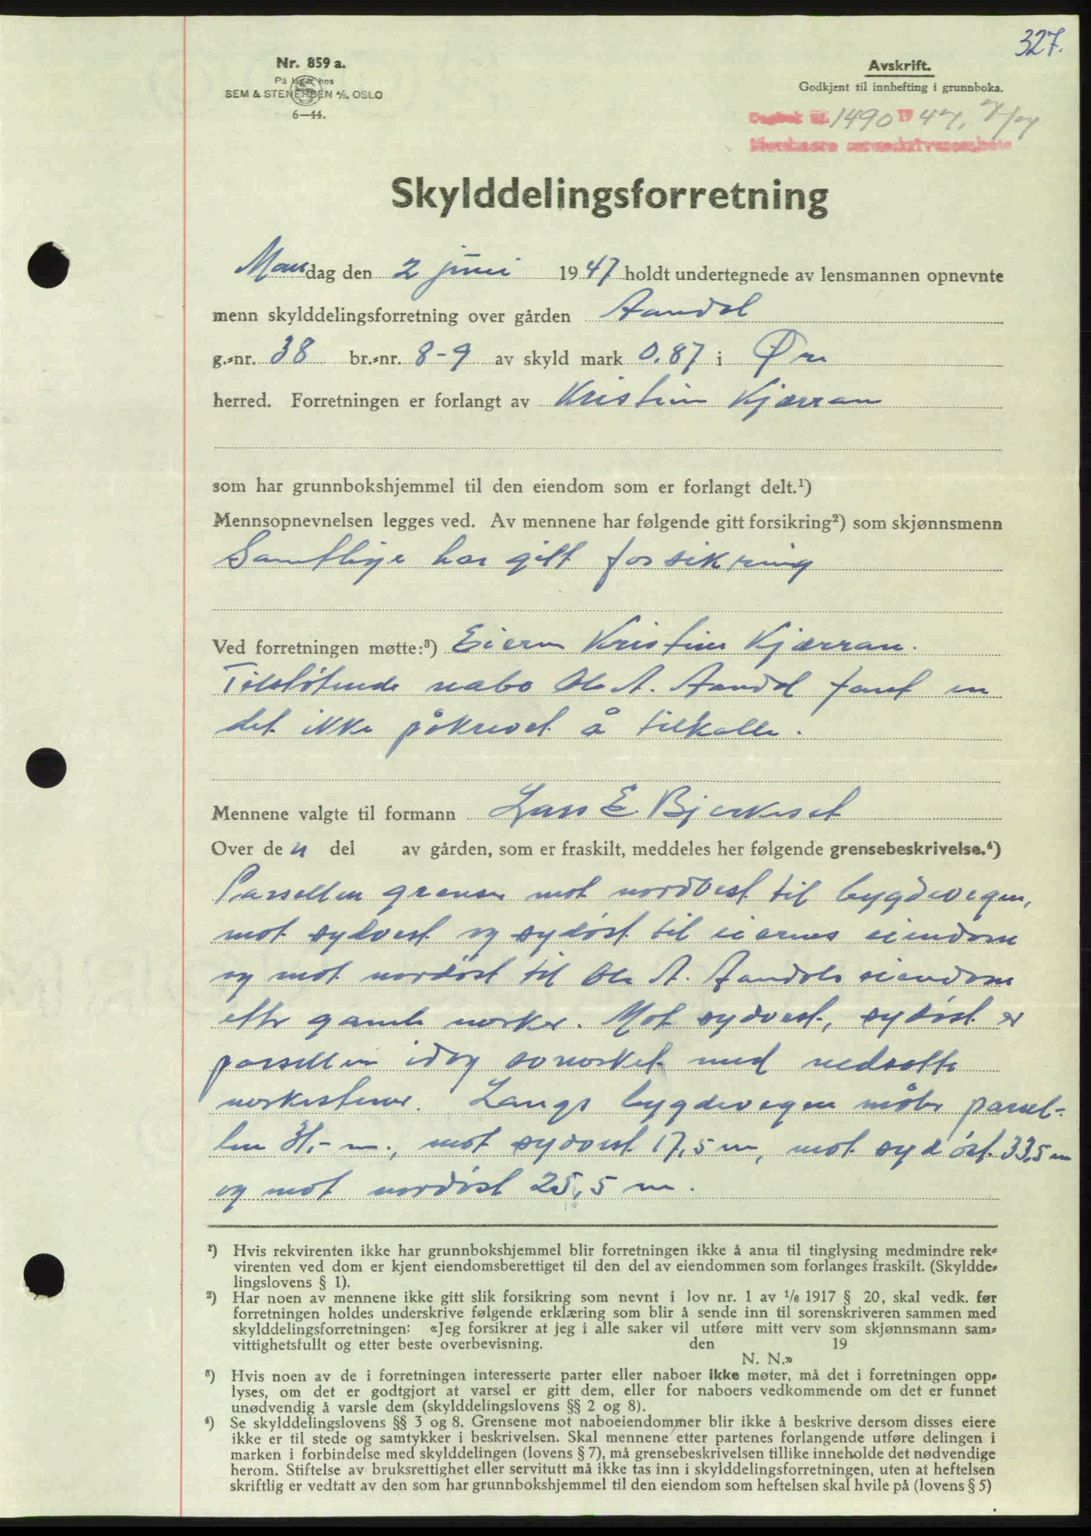 327.
Nr. 859 a.
På lager hos
SEM & STENERSEN A/S, OSLO
6—44.
Avskrift.
Godkjent til innhefting i grunnboka.
Dagbok nr. 1490 1947, 7/7
sorenskriverembete
Skylddelingsforretning
Mandag den 2 juni 1947 holdt undertegnede av lensmannen opnevnte
menn skylddelingsforretning over gården Aandal
g.-nr. 38 br.-nr. 8-9 av skyld mark 0,87 i Øre
herred. Forretningen er forlangt av Kristine Kjærran
som har grunnbokshjemmel til den eiendom som er forlangt delt.¹)
Mennsopnevnelsen legges ved. Av mennene har følgende gitt forsikring²) som skjønnsmenn
Samtlige har gitt forsikring
Ved forretningen møtte:³) Eieren Kristine Kjærran.
Tilstøtende nabo Ole A. Aandal fant en
det ikke påkrevet å tilkalle.
Mennene valgte til formann Lars E. Bjerkeset
Over den del av gården, som er fraskilt, meddeles her følgende grensebeskrivelse.⁴)
Parsellen grenser mot nordvest til bygdevegen,
mot sydvest og sydøst til eierens eiendom
og mot nordøst til Ole A. Aandals eiendom
etter gamle merker. Mot sydvest, sydøst er
parsellen idag avmerket med nedsatte
merkestener. Langs bygdevegen måler parsel-
len 31,- m., mot sydvest 17,5 m, mot sydøst 33,5 m
og mot nordøst 25,5 m.
¹) Hvis rekvirenten ikke har grunnbokshjemmel blir forretningen ikke å anta til tinglysing medmindre rek-
virenten ved dom er kjent eiendomsberettiget til den del av eiendommen som forlanges fraskilt. (Skyldde-
lingslovens § 1).
²) Har noen av mennene ikke gitt slik forsikring som nevnt i lov nr. 1 av ¹/₆ 1917 § 20, skal vedk. før
forretningen holdes underskrive følgende erklæring som blir å sende inn til sorenskriveren sammen med
skylddelingsforretningen: «Jeg forsikrer at jeg i alle saker vil utføre mitt verv som skjønnsmann sam-
vittighetsfullt og etter beste overbevisning. den 19
N. N.»
³) Hvis noen av de i forretningen interesserte parter eller naboer ikke møter, må det i forretningen opp-
lyses, om det er godtgjort at varsel er gitt dem, eller for naboers vedkommende om det er funnet
unødvendig å varsle dem (skylddelingslovens §§ 2 og 8).
⁴) Se skylddelingslovens §§ 3 og 8. Grensene mot naboeiendommer blir ikke å beskrive dersom disses eiere
ikke er til stede og samtykker i beskrivelsen. Skal mennene etter partenes forlangende utføre delingen i
marken i forbindelse med skylddelingen (lovens § 7), må grensebeskrivelsen tillike inneholde det nødvendige
herom. Stiftelse av bruksrettighet eller servitutt må ikke tas inn i skylddelingsforretningen, uten at heftelsen
skriftlig er vedtatt av den som har grunnbokshjemmel til den eiendom som heftelsen skal hvile på (lovens § 5)